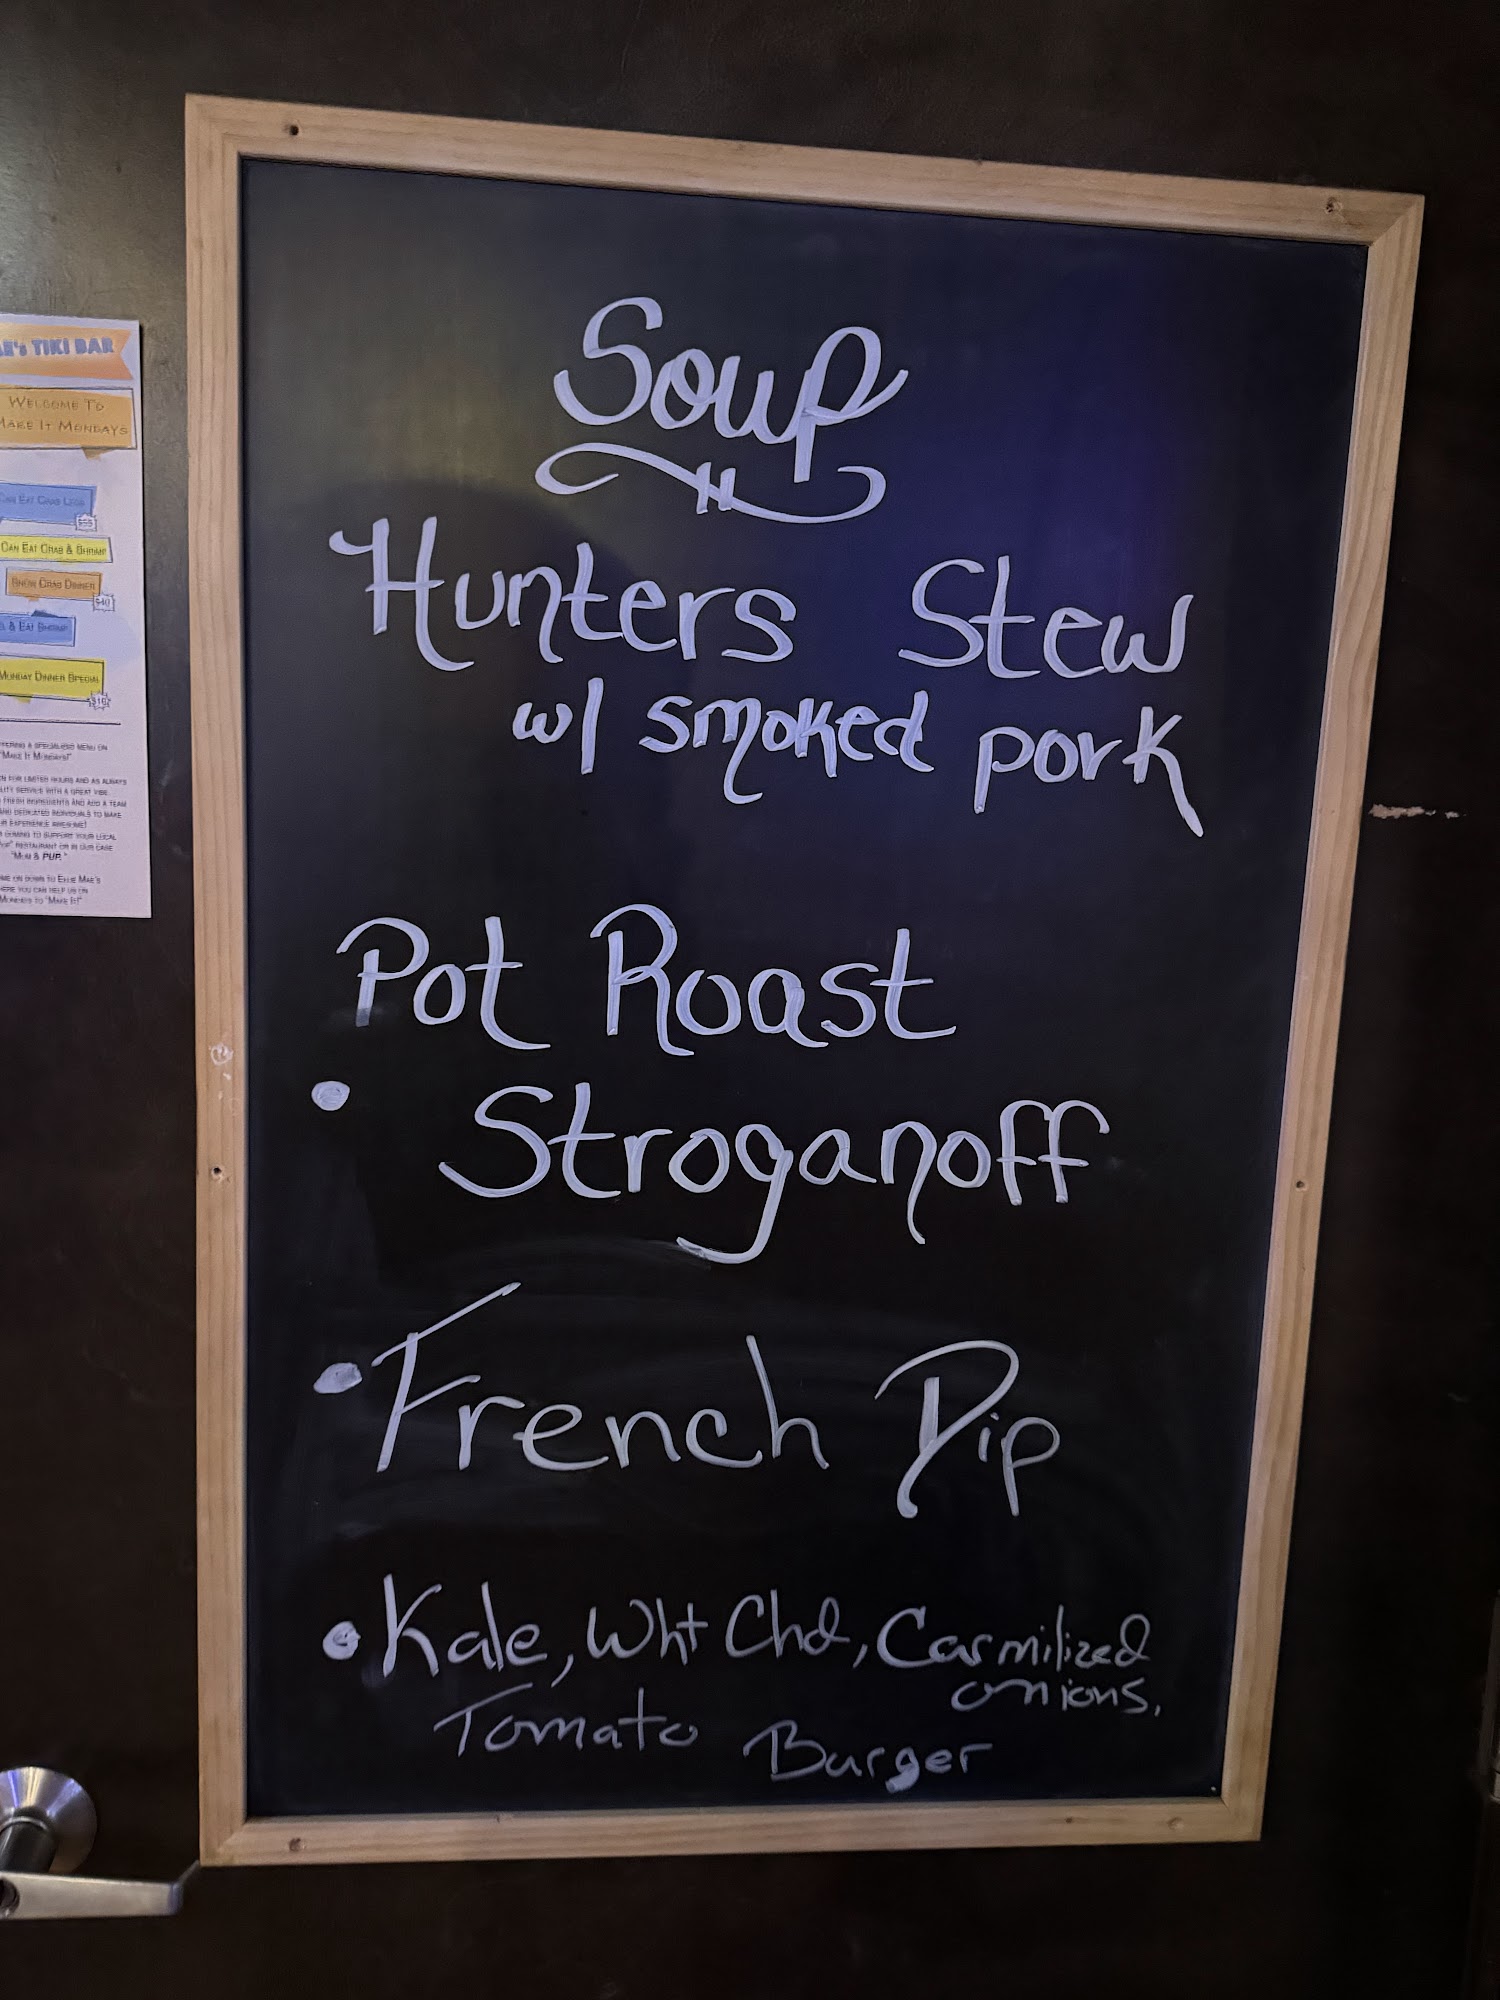 Soup
Hunters Stew
w/ smoked pork
Pot Roast
• Stroganoff
• French Dip
• Kale, Wht Chd, Carmilized
onions,
Tomato Burger
TIKI BAR
WELCOME TO
MAKE IT MONDAYS
CAN EAT CRAB LEGS
CAN EAT CRAB & SHRIMP
SNOW CRAB DINNER
$40
& EAT SHRIMP
MONDAY DINNER SPECIAL
$16
A SPECIALIZED MENU ON
"MAKE IT MONDAYS!"
FOR LIMITED HOURS AND AS ALWAYS
SERVICE WITH A GREAT VIBE.
FRESH INGREDIENTS AND ADD A TEAM
AND DEDICATED INDIVIDUALS TO MAKE
EXPERIENCE AWESOME!
COMING TO SUPPORT YOUR LOCAL
RESTAURANT OR IN OUR CASE
"MOM & PUP."
ON DOWN TO ELLIE MAE'S
WHERE YOU CAN HELP US ON
MONDAYS TO "MAKE IT!"